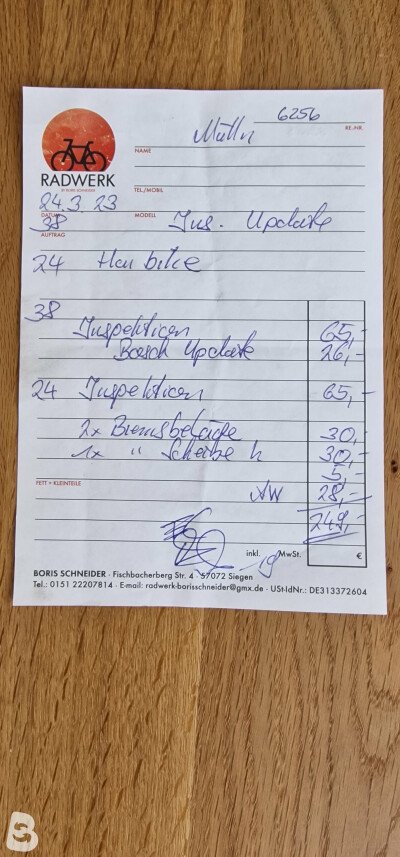 6256
RE.-NR.
NAME Müller
RADWERK
BY BORIS SCHNEIDER
TEL./MOBIL
24.3.23
DATUM MODELL Ins. Update
38
AUFTRAG
24 Haibike
38
Inspektion 65,-
Bosch Update 26,-
24 Inspektion 65,-
2x Bremsbeläge 30,-
1x " Scheibe h 30,-
5,-
FETT + KLEINTEILE
AW 28,-
249,-
inkl. 19 MwSt. €
BORIS SCHNEIDER · Fischbacherberg Str. 4 · 57072 Siegen
Tel.: 0151 22207814 · E-mail: radwerk-borisschneider@gmx.de · USt-IdNr.: DE313372604